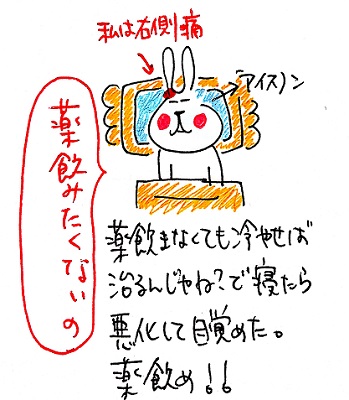 私は右側痛
アイスノン
薬飲みたくないの
薬飲まなくても冷やせば
治るんじゃね?で寝たら
悪化して目覚めた。
薬飲め!!